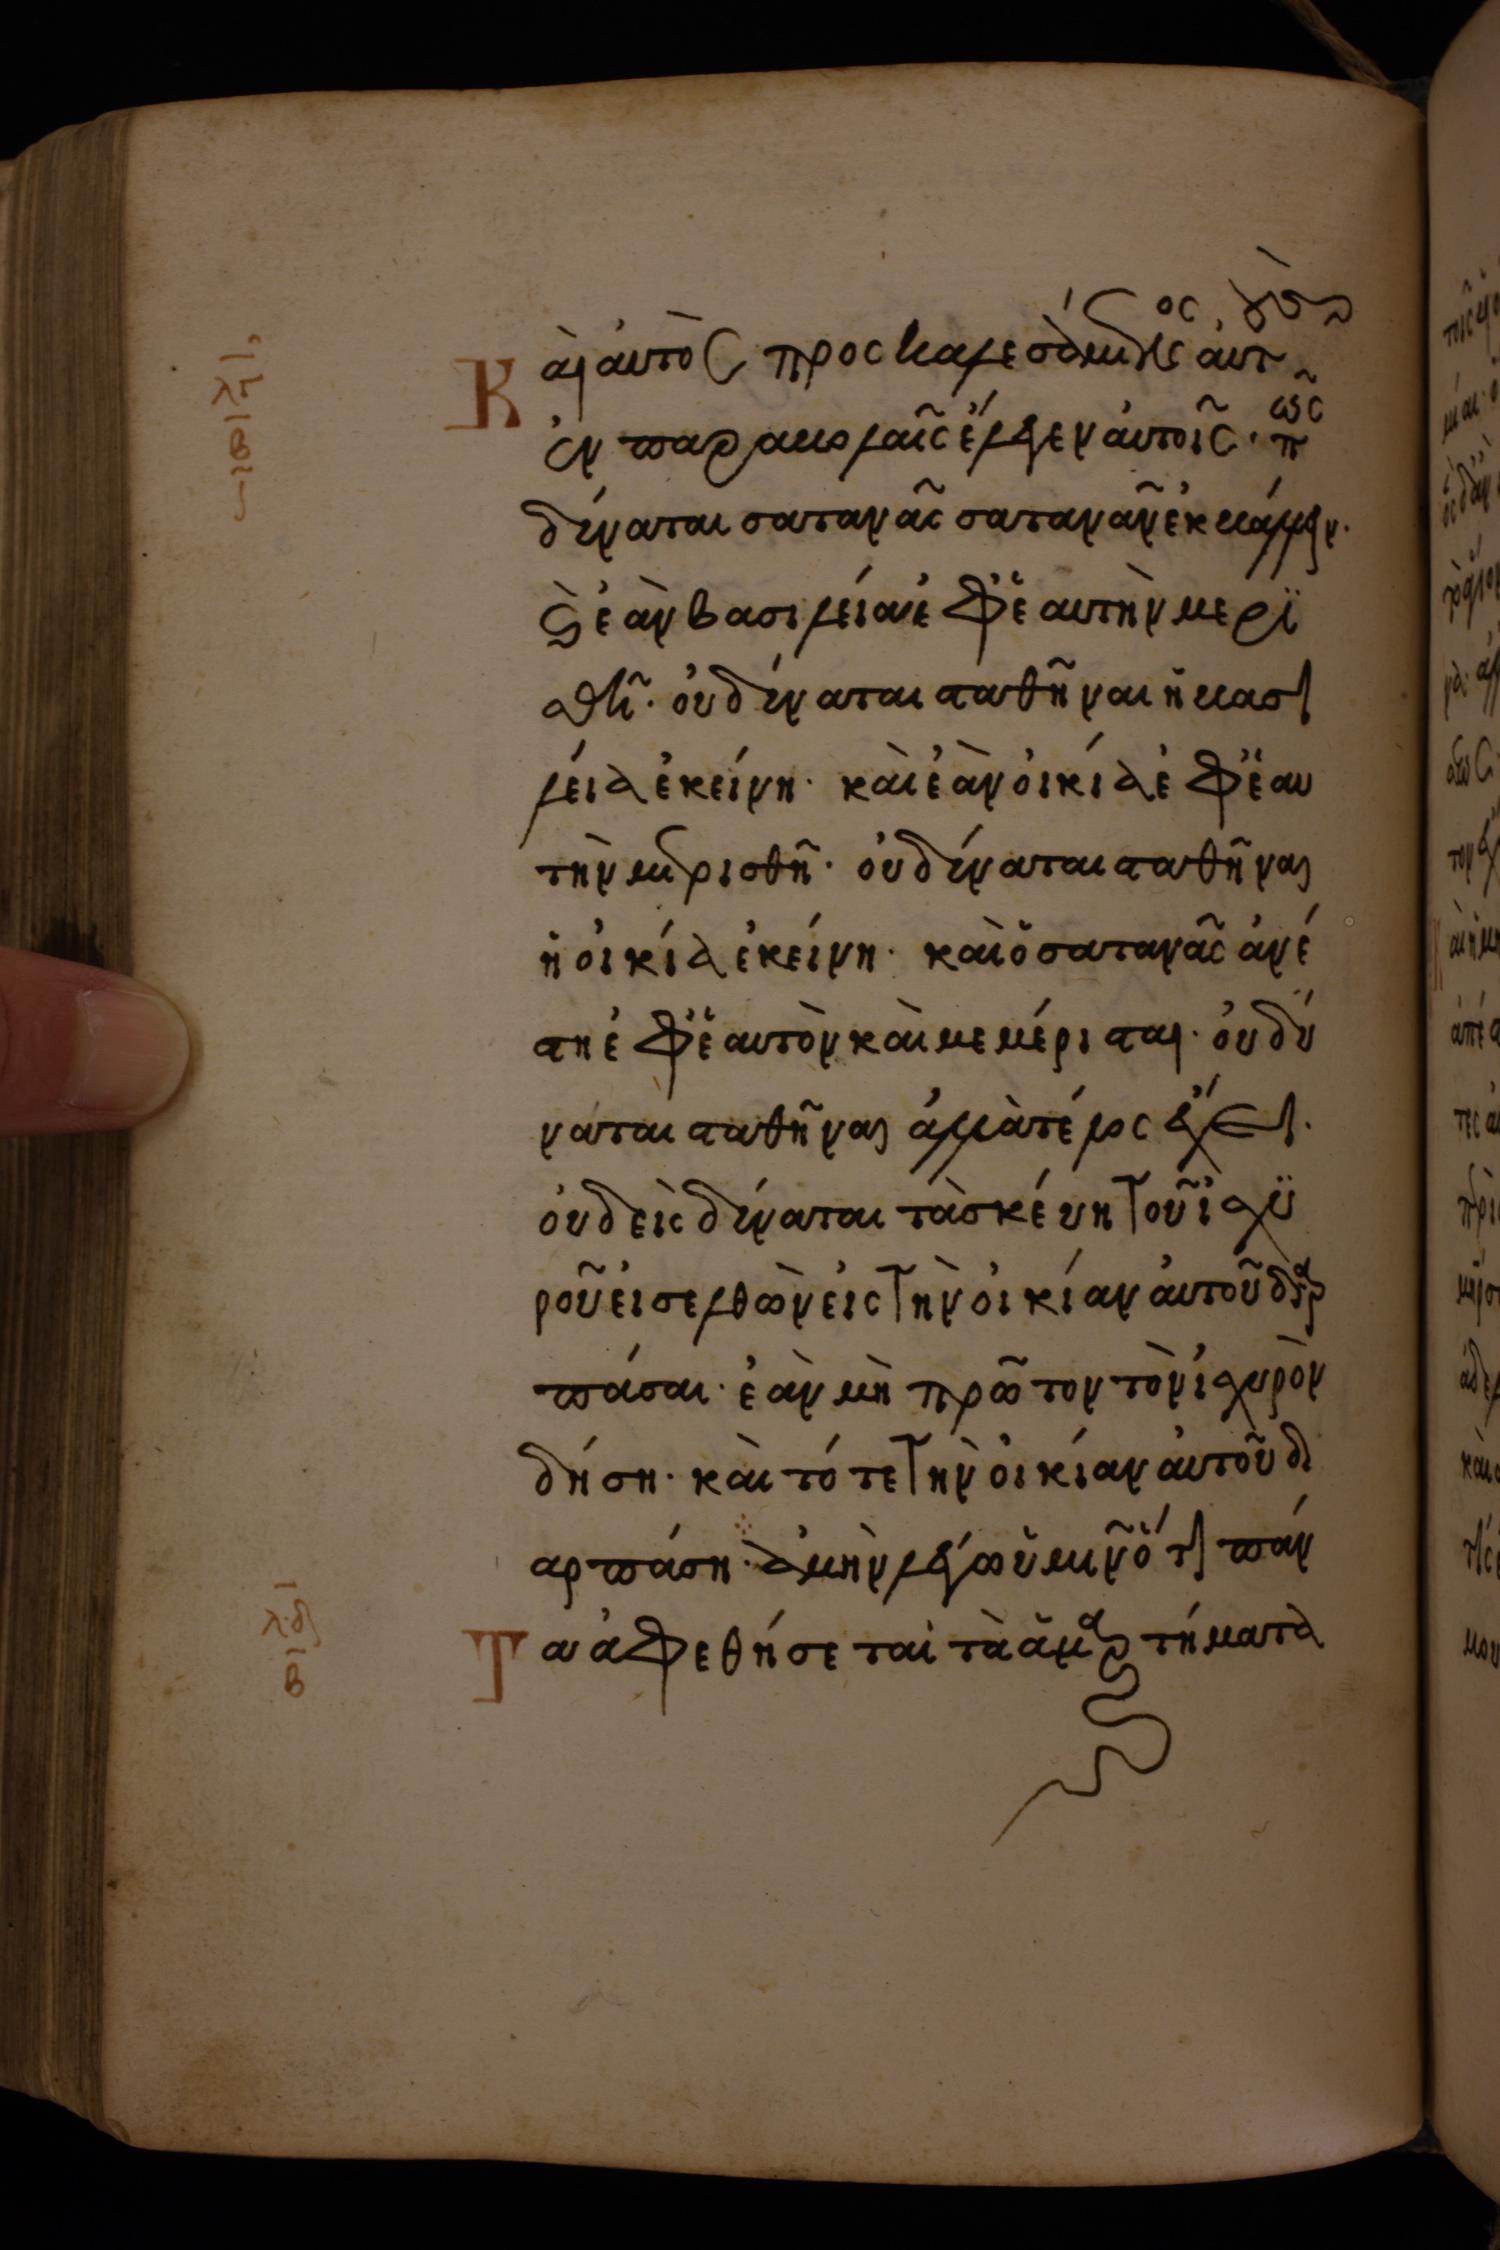 Καὶ αὐτὸς προσκαλεσάμενος αὐτοὺς
ἐν παραβολαῖς ἔλεγεν αὐτοῖς· πῶς
δύναται σατανᾶς σατανᾶν ἐκβάλλειν·
καὶ ἐὰν βασιλεία ἐφ' ἑαυτὴν μερι
σθῆ· οὐ δύναται σταθῆναι ἡ βασι
λεία ἐκείνη· καὶ ἐὰν οἰκία ἐφ' ἑαυ
τὴν μερισθῆ· οὐ δύναται σταθῆναι
ἡ οἰκία ἐκείνη· καὶ ὁ σατανᾶς ἀνέ
στη ἐφ' ἑαυτὸν καὶ μεμέρισται· οὐ δύ
ναται σταθῆναι ἀλλὰ τέλος ἔχει·
οὐδεὶς δύναται τὰ σκεύη τοῦ ἰσχυ
ροῦ εἰσελθὼν εἰς τὴν οἰκίαν αὐτοῦ διαρ
πάσαι· ἐὰν μὴ πρῶτον τὸν ἰσχυρὸν
δήση· καὶ τότε τὴν οἰκίαν αὐτοῦ δι
αρπάση· ἀμὴν λέγω ὑμῖν ὅτι πάν
Τα ἀφεθήσεται τὰ ἁμαρτήματα
λγ
β
λδ
β